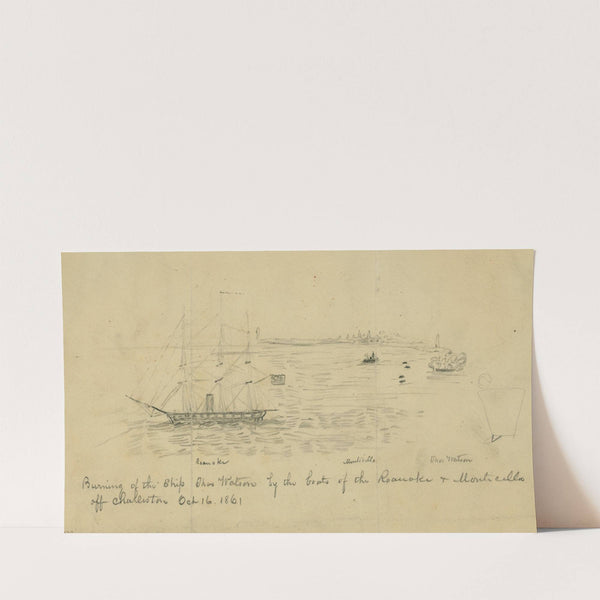 Roanoke Monticello Chas Watson
Burning of the Ship Chas Watson by the boats of the Roanoke & Monticello
off Charleston Oct 16. 1861